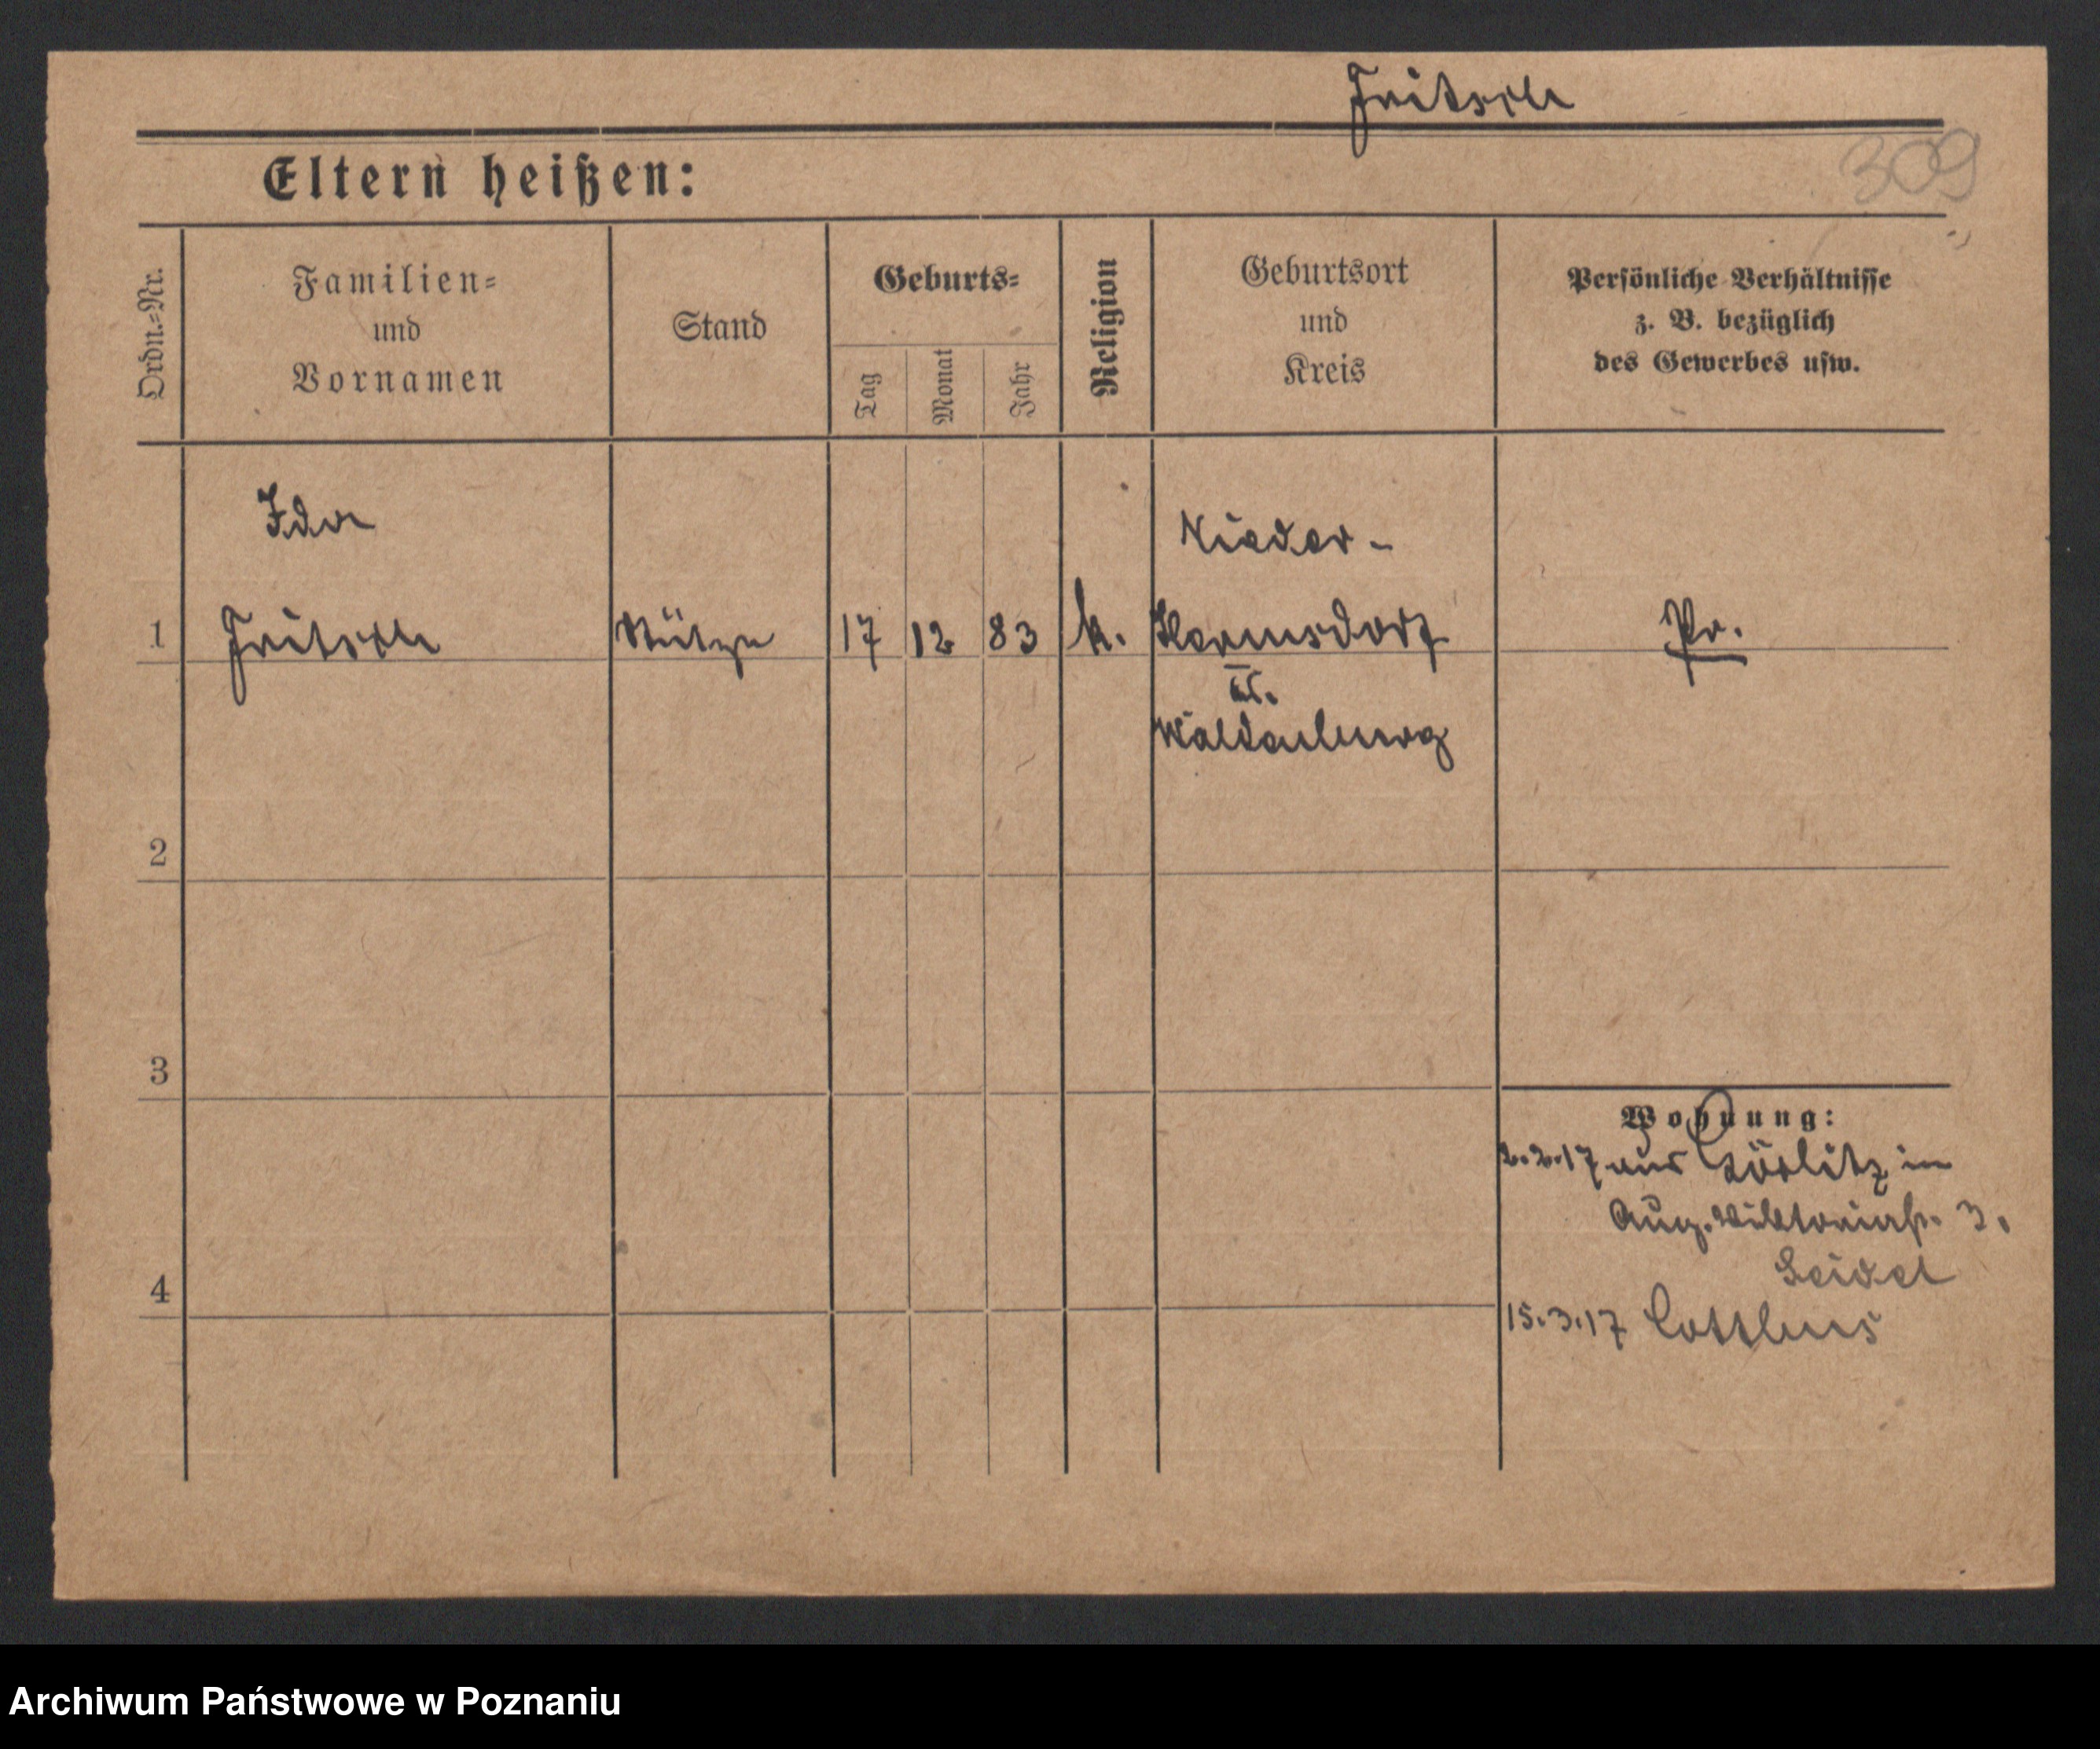 Fritsch
309
Eltern heißen:
Ordn.=Nr.
Familien=
und
Vornamen
Stand
Geburts=
Tag
Monat
Jahr
Religion
Geburtsort
und
Kreis
Persönliche Verhältnisse
z. B. bezüglich
des Gewerbes usw.
Ida
Nieder-
1 Fritsch Stütze 17 12 83 k. Hermsdorf Pr.
Waldenburg
2
3
Wohnung:
2.2.17 aus Görlitz in
Aug. Viktoriastr. 3.
Seidel
4
15.3.17 Cottbus
Archiwum Państwowe w Poznaniu